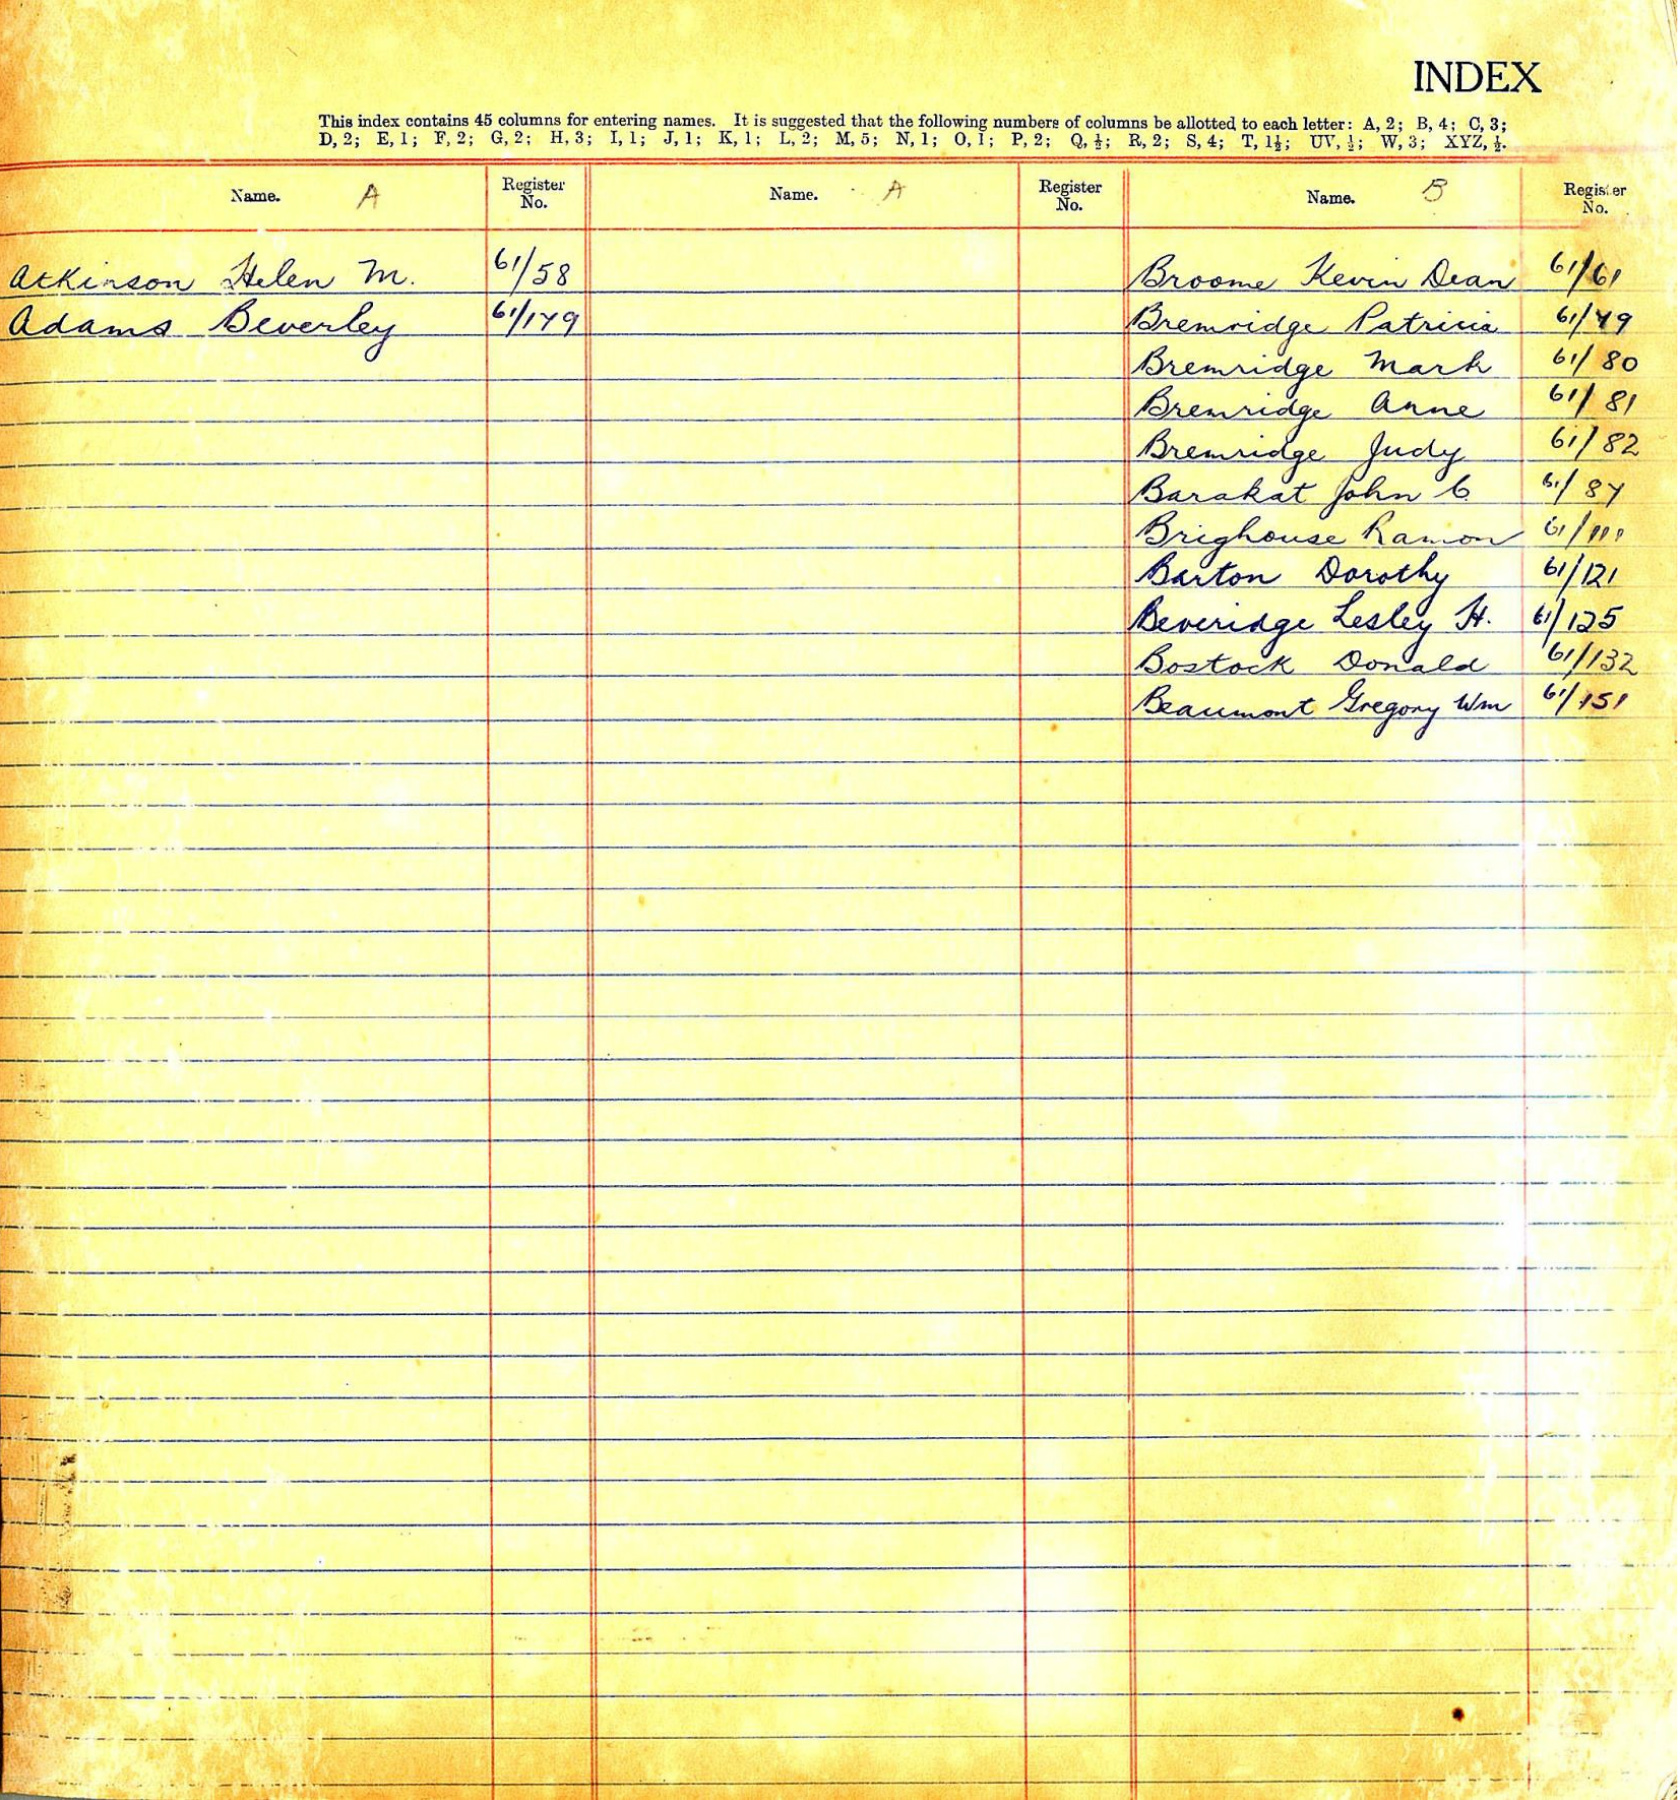 INDEX
This index contains 45 columns for entering names. It is suggested that the following numbers of columns be allotted to each letter: A, 2; B, 4; C, 3;
D, 2; E, 1; F, 2; G, 2; H, 3; I, 1; J, 1; K, 1; L, 2; M, 5; N, 1; O, 1; P, 2; Q, ½; R, 2; S, 4; T, 1½; UV, ½; W, 3; XYZ, ½.
Name. A Register No. Name. A Register No. Name. B Register No.
Atkinson Helen M. 61/58 Broome Kevin Dean 61/61
Adams Beverley 61/179 Bremridge Patricia 61/79
Bremridge Mark 61/80
Bremridge Anne 61/81
Bremridge Judy 61/82
Barakat John C. 61/87
Brighouse Ramon 61/111
Barton Dorothy 61/121
Beveridge Lesley H. 61/125
Bostock Donald 61/132
Beaumont Gregory Wm 61/151